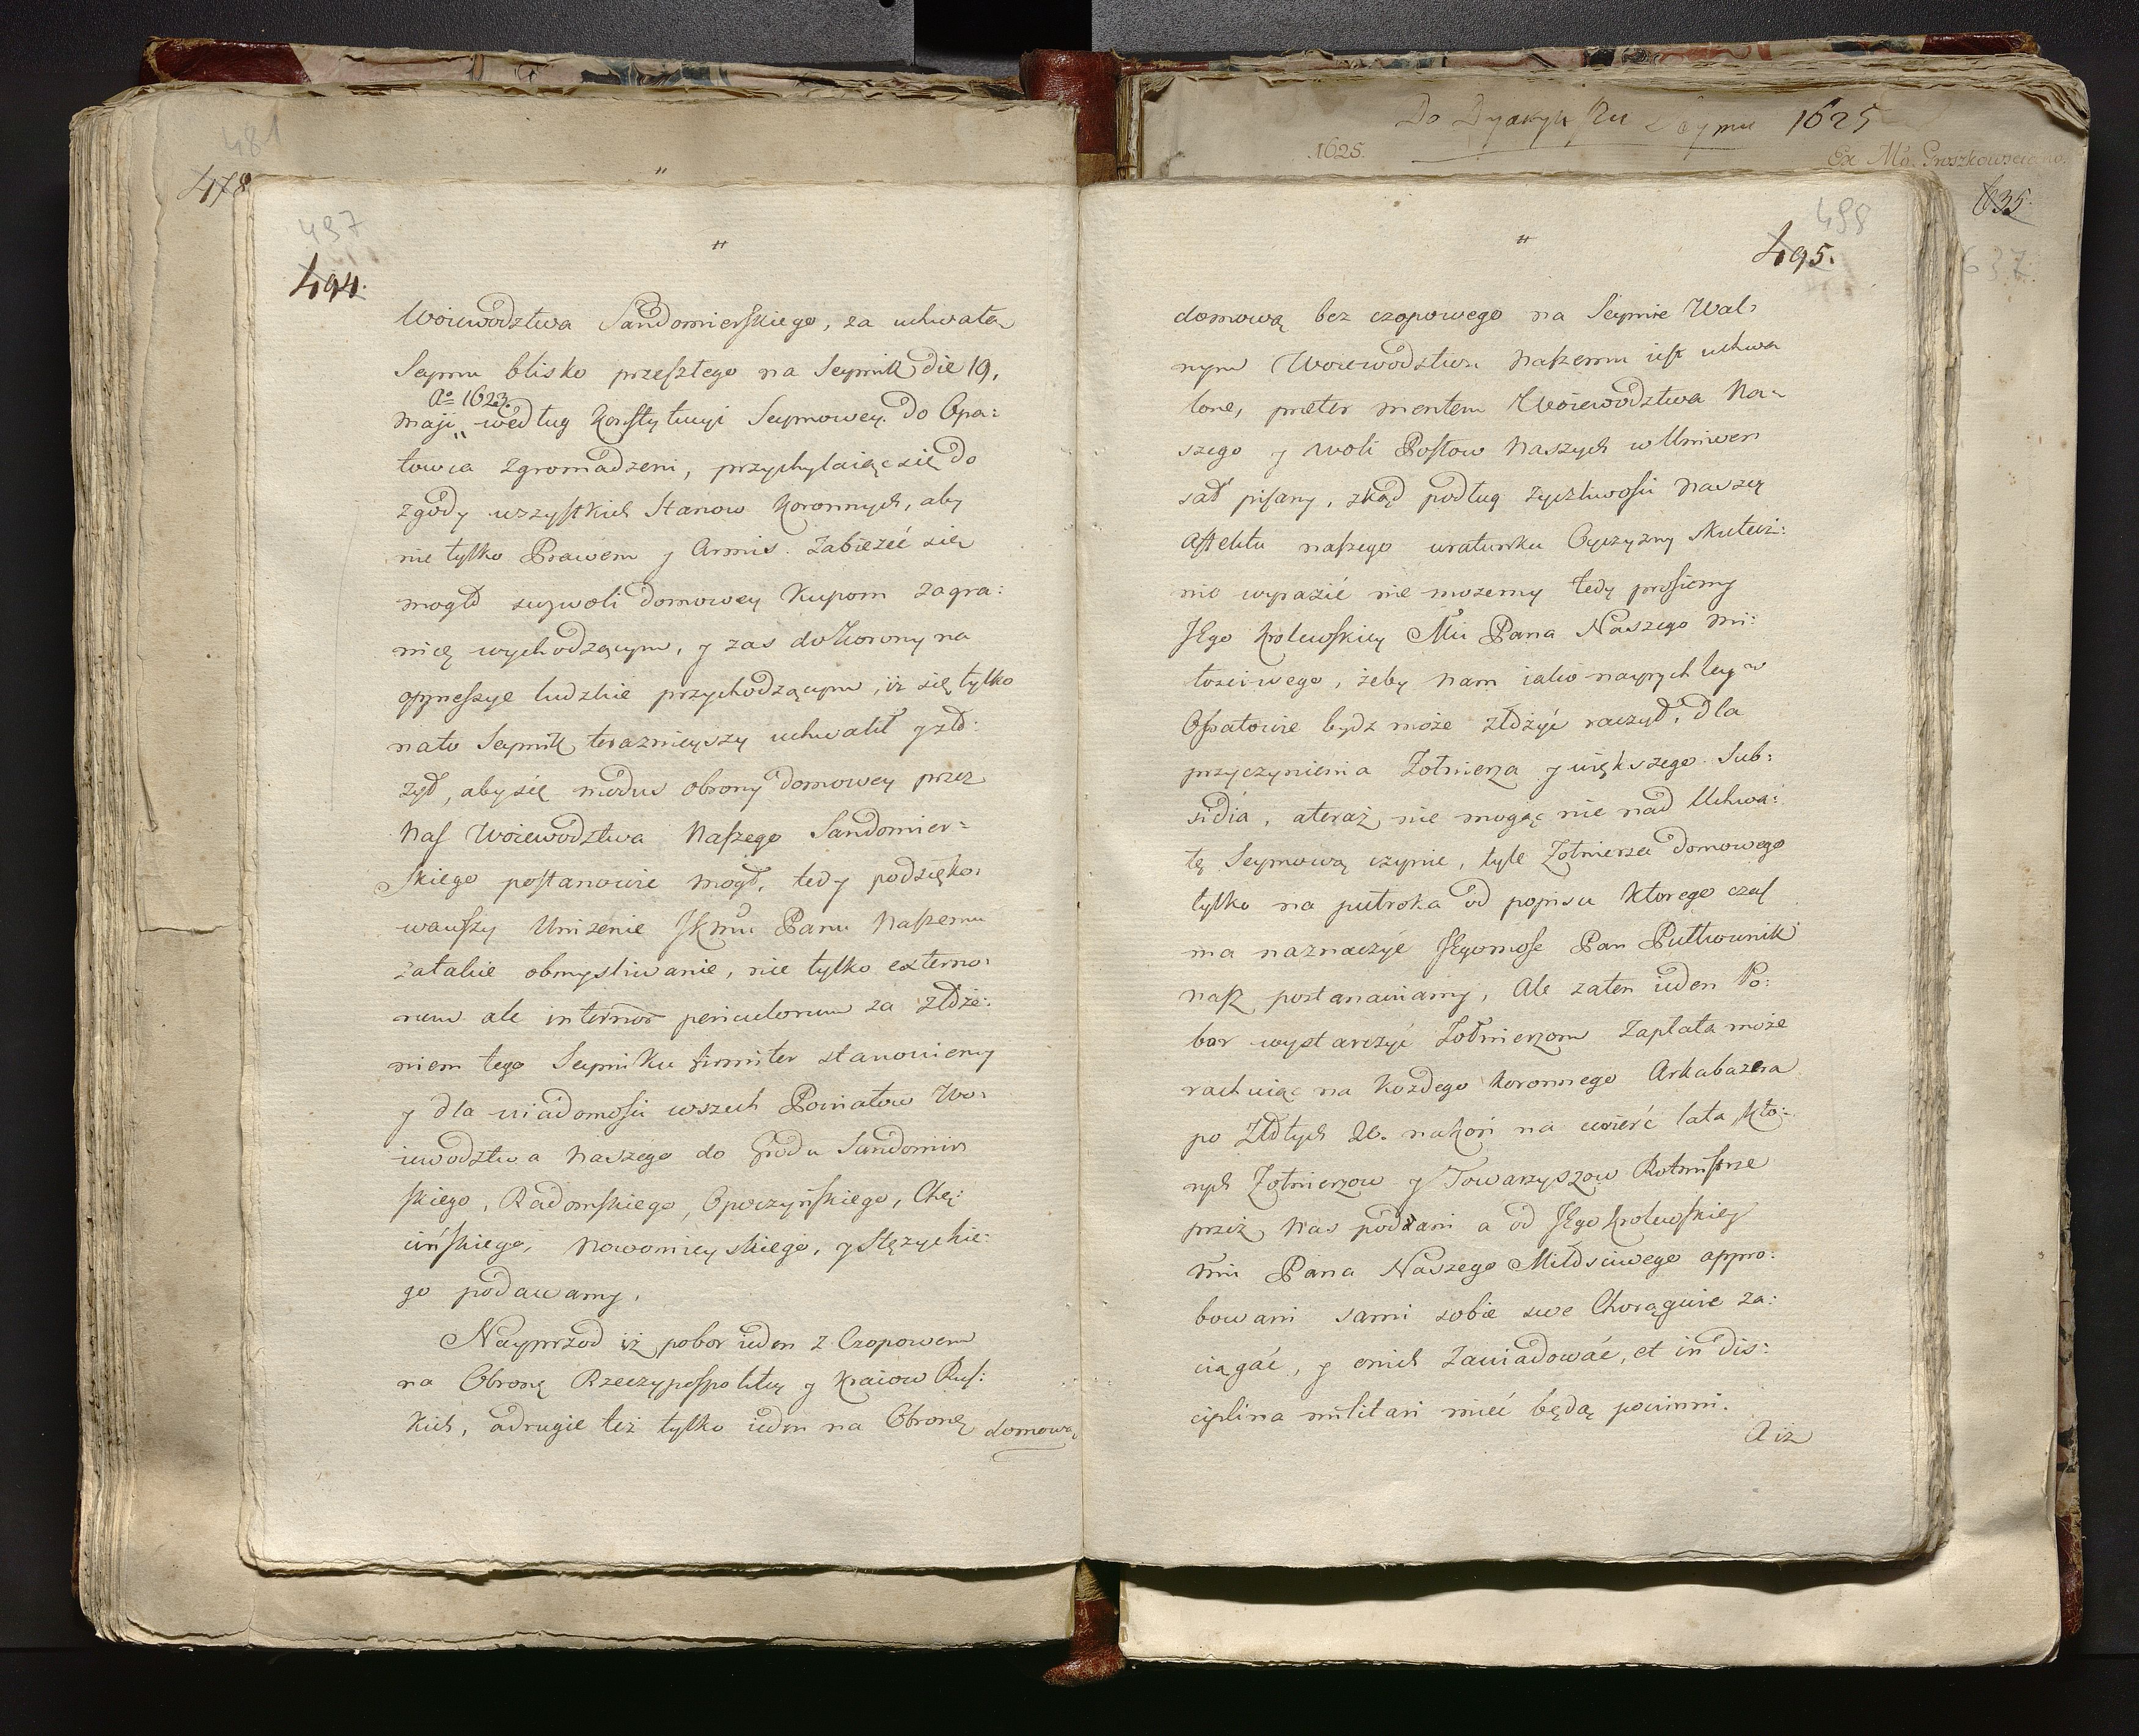 481
478
"
497
494.
"
Woiewodztwa Sandomierskiego, za uchwałą
Seymu blisko przeszłego na Seymik die 19.
Ao 1623.
Maji „ według Konstytucyi Seymowey. do Opa:
towca zgromadzeni, przychylaiąc się do
zgody wszystkich Stanow Koronnych, aby
nie tylko Prawem y Armis. Zabieżeć się
mogło swywoli domowey Kupom zagra:
nicę wychodzącym, y zas do Korony na
oppressye ludzkie przychodzącym, iż się tylko
nato Seymik teraznieyszy uchwalił y zło:
żył, aby się modus obrony domowey przez
Nas Woiewodztwa Naszego Sandomier=
skiego postanowic mogł, tedy podzięko:
wawszy Unizenie JKMci Panu Naszemu
zatakie obmysliwanie, nie tylko externo:
rum ale internor periculorum za złoże:
niem tego Seymiku firmiter stanowiemy
y dla wiadomosci wszech Powiatow Wo:
iewodztwa Naszego do Grodu Sandomir
skiego, Radomskiego, Opoczyńskiego, Chę:
cińskiego, Nowomieyskiego, y Stężyckie:
go podawamy.
Nayprzod iż pobor ieden z Czopowem
na Obronę Rzeczypospolitey y Kraiow Rus:
kich, a drugie też tylko ieden na Obronę domową
Do Dyaryuszu Seymu 1625
1625.
Ex Mo. Pruszkowsciano.
635.
637.
498
"
495.
domową bez czopowego na Seymie Wal:
nym Woiewodztwu Naszemu iest uchwa
lone, præter mentem Woiewodztwa Na:
szego y woli Posłow Naszych w Uniwer
sał pisany, zkąd podług życzliwości naszey
Affektu naszego wratunku Oyczyzny skutecz:
nie wyrazić nie możemy tedy prosiemy
JEgo Krolewskiey Mci Pana Naszego Mi:
łościwego, żeby Nam iako nayprychley w
Opatowie bydz może złożyć raczył, dla
przyczynienia Żołnierza y większego Sub:
sidia, ateraz nie mogąc nic nad Uchwa:
łę Seymową czynic, tyle Żołnierza domowego
tylko na pułroka od popisu ktorego czas
ma naznaczyć JEgomosc Pan Pułkownik
nasz postanawiamy, Ale zaten ieden Po:
bor wystarczyć Żołnierzom Zapłata może
rachuiąc na Każdego Koronnego Arkabuzera
po Złotych 20. nakoń na cwierć lata, Kto:
rych Żołnierzow y Towarzyszow Rotmistrze
przez Nas podani a od JEgo Krolewskiey
Mci Pana Naszego Miłosciwego appro:
bowani sami sobie swe Chorągwie za:
ciągać, y onich Zawiadować, et in dis:
ciplina militari mieć będą powinni.
A iż